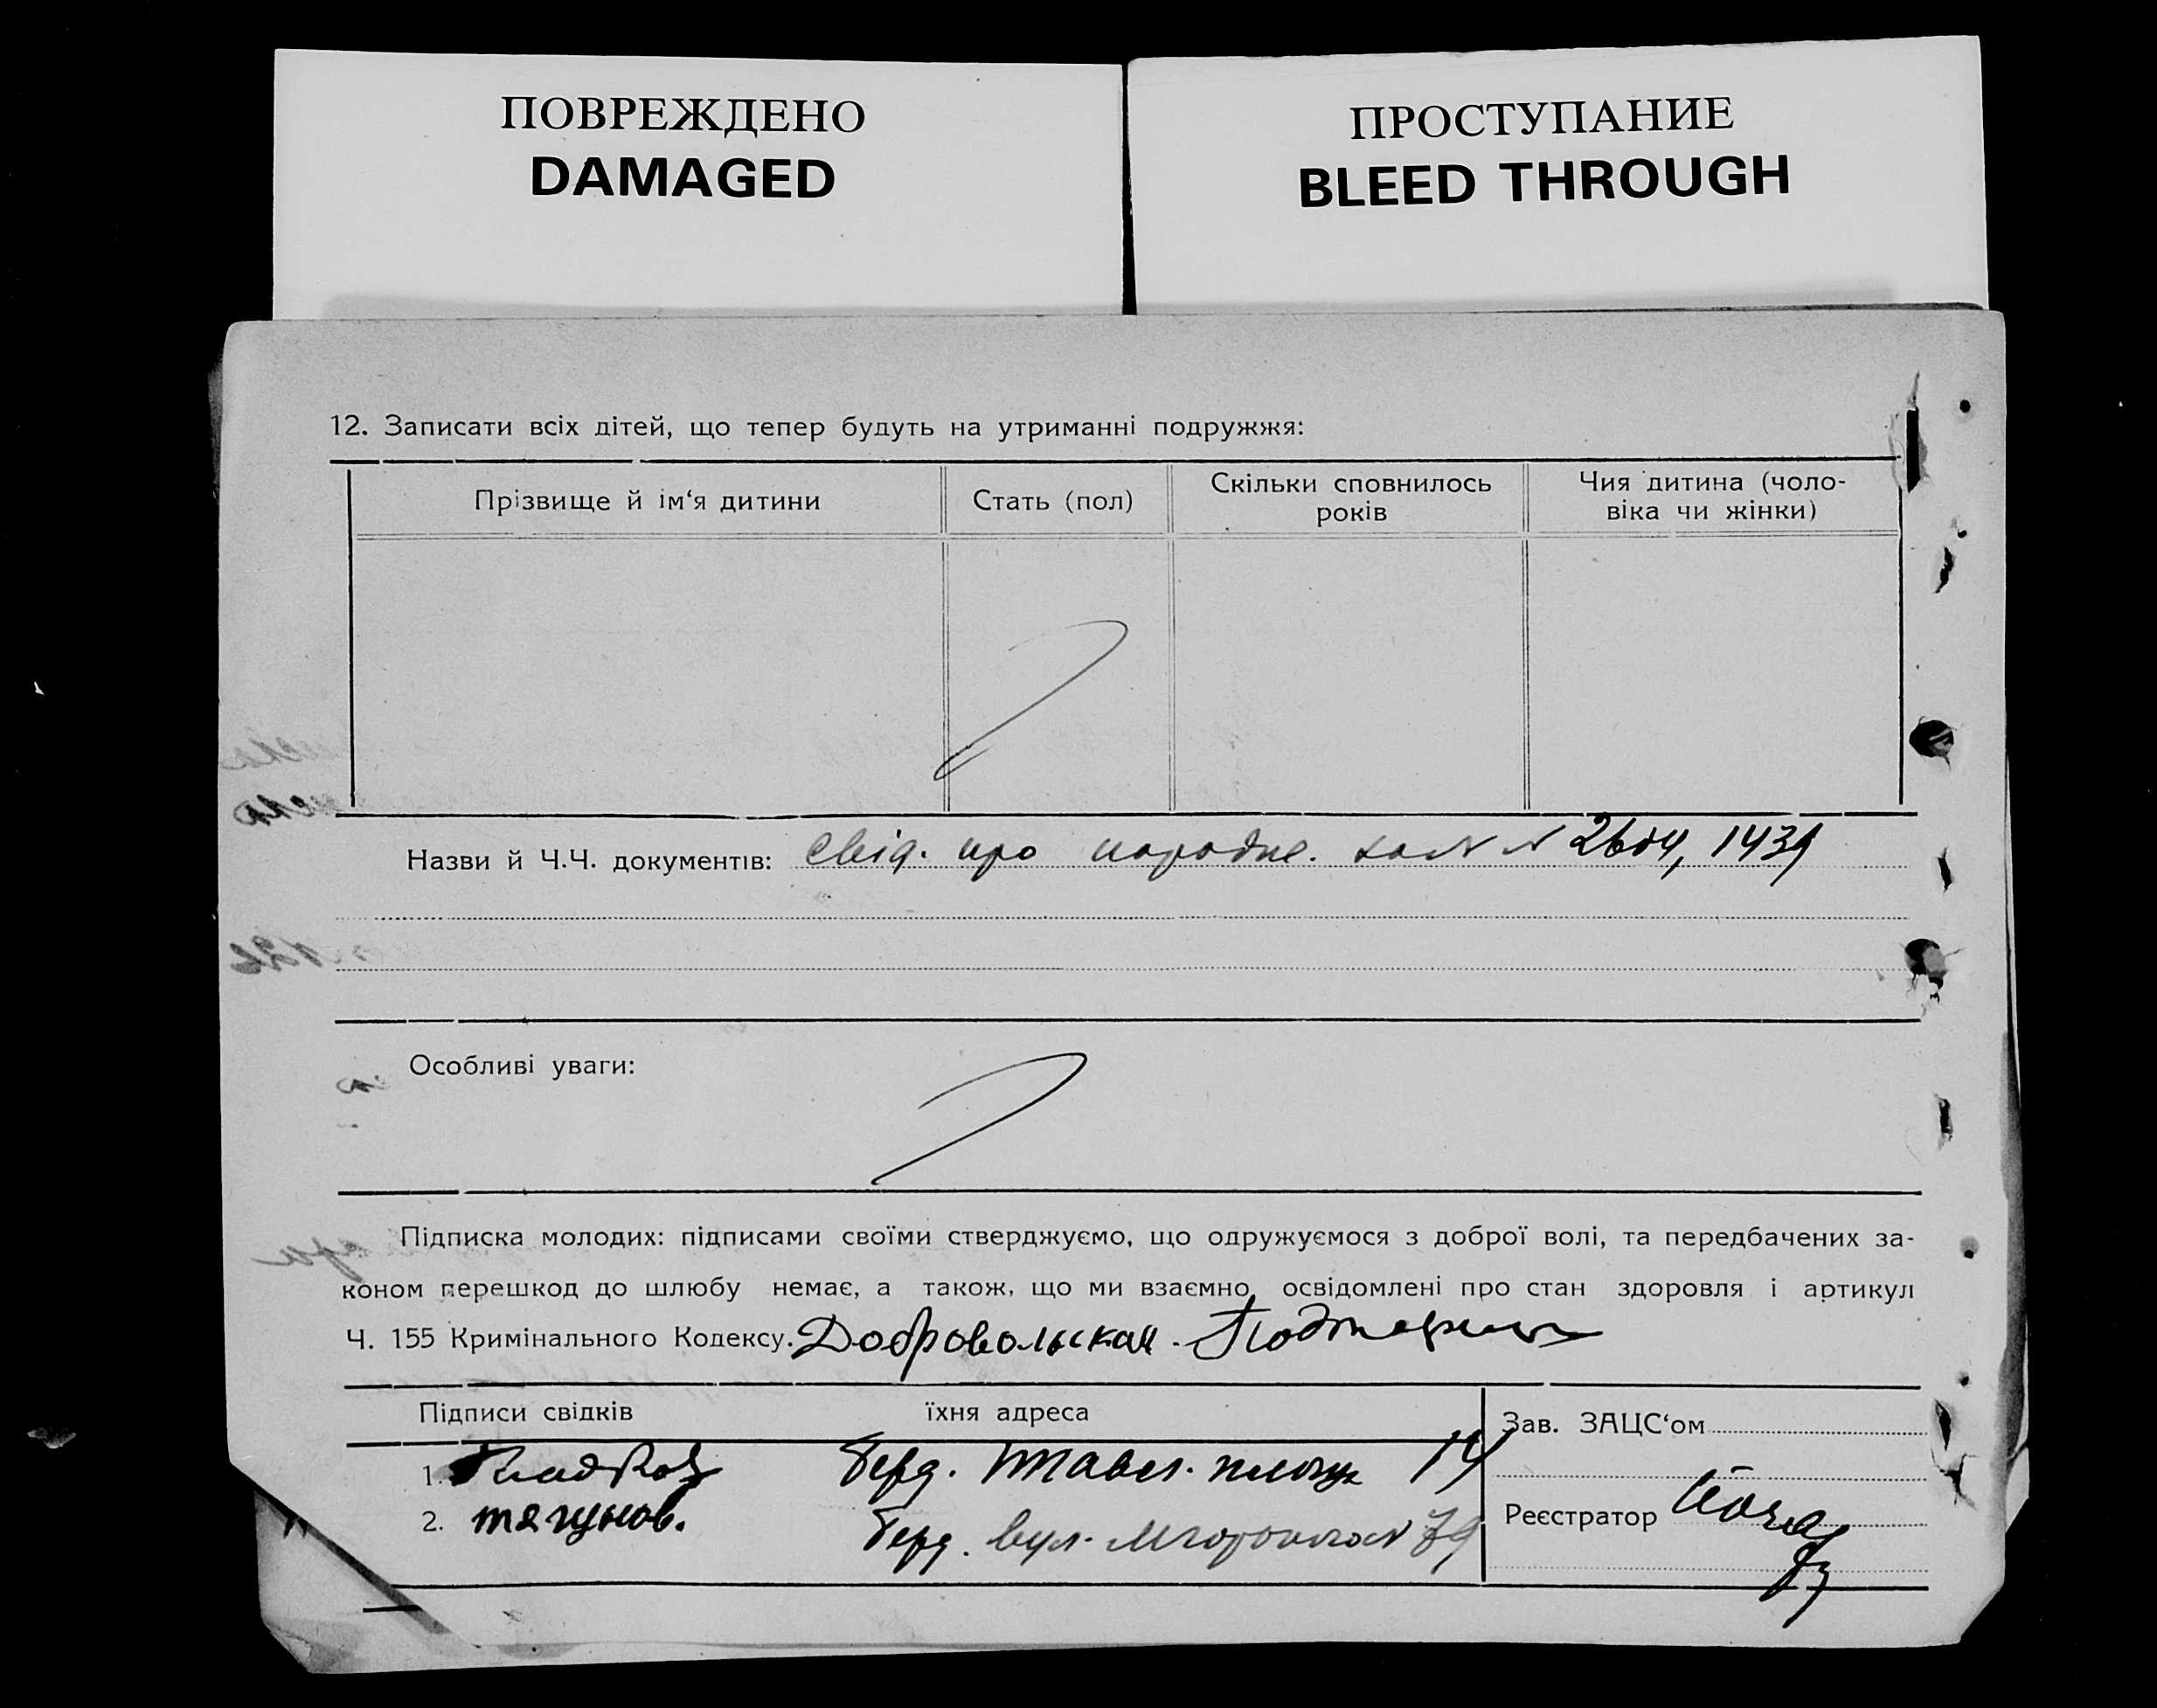 ПОВРЕЖДЕНО
DAMAGED
ПРОСТУПАНИЕ
BLEED THROUGH
12. Записати всіх дітей, що тепер будуть на утриманні подружжя:
Прізвище й ім‘я дитини
Стать (пол)
Скільки сповнилось
років
Чия дитина (чоло-
віка чи жінки)
Назви й Ч.Ч. документів: Свід. про народже. за N N
Особливі уваги:
Підписка молодих: підписами своїми стверджуємо, що одружуємося з доброї волі, та передбачених за-
коном перешкод до шлюбу немає, а також, що ми взаємно освідомлені про стан здоровля і артикул
Ч. 155 Кримінального Кодексу. Добровольская.
Підписи свідків
їхня адреса
Зав. ЗАЦС‘ом
1. Берд. площа 14
2. тягунов. Берд. вул. 79
Реєстратор